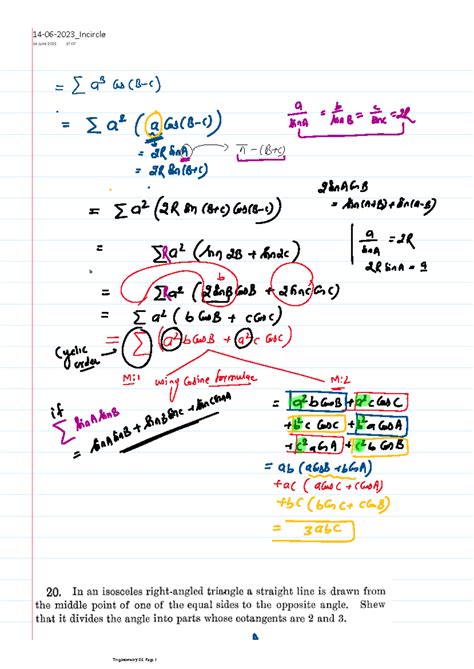 14-06-2023_Incircle
14 June 2023 07:07
= ∑ a³ Cos(B-C)
= ∑ a² ( a Cos(B-C))
a/sinA = b/sinB = c/sinC = 2R
= 2R sinA → π-(B+C)
= 2R sin(B+C)
2sinA CosB
= sin(A+B) + sin(A-B)
= ∑ a² (2R sin(B+C) Cos(B-C))
= ∑ R a² (sin 2B + sin 2C)
a/sinA = 2R
2R sinA = a
b
= ∑ R a² (2 sinB CosB + 2 sinC CosC)
= ∑ a² ( b CosB + c CosC)
= ∑ (a² b CosB + a² c CosC)
Cyclic order
M:1 using Cosine formulae
M:2
if
∑ sinA sinB
= sinA sinB + sinB sinC + sinC sinA
= a² b CosB + a² c CosC
+ b² c CosC + b² a CosA
+ c² a CosA + c² b CosB
= ab (a CosB + b CosA)
+ ac ( a CosC + c CosA)
+ bc ( b CosC + c CosB)
= 3abc
20. In an isosceles right-angled triangle a straight line is drawn from
the middle point of one of the equal sides to the opposite angle. Shew
that it divides the angle into parts whose cotangents are 2 and 3.